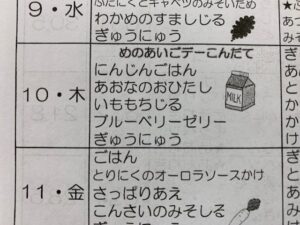 9・水
ぶたにくとキャベツのみそいため
わかめのすましじる
ぎゅうにゅう
10・木
めのあいごデーこんだて
にんじんごはん
あおなのおひたし
いももちじる
ブルーベリーゼリー
ぎゅうにゅう
MILK
11・金
ごはん
とりにくのオーロラソースかけ
さっぱりあえ
こんさいのみそしる
ぎゅうにゅう